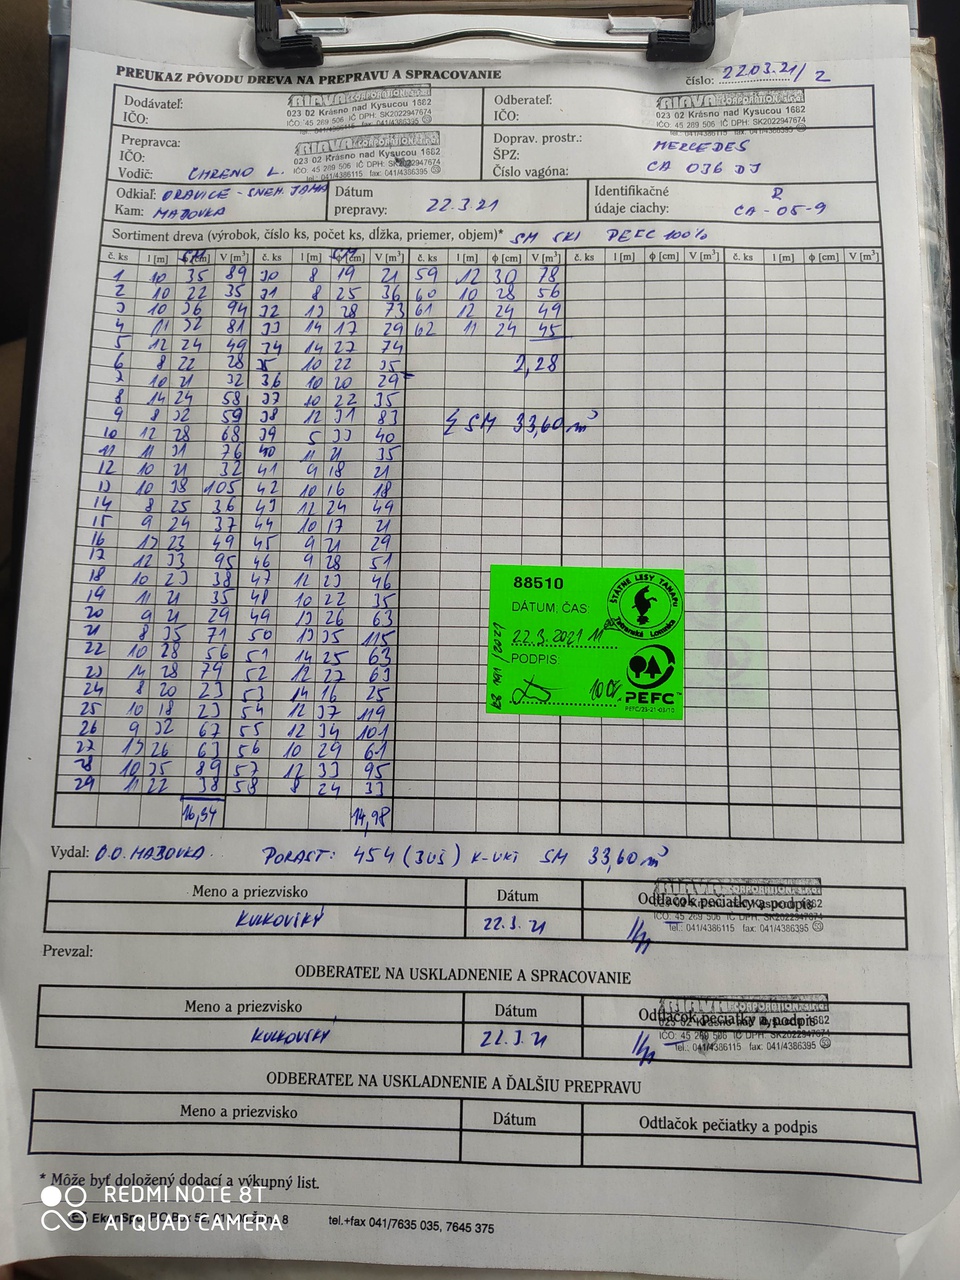 PREUKAZ PÔVODU DREVA NA PREPRAVU A SPRACOVANIE
číslo: 2203.21/2
Dodávateľ:
IČO:
RIAVA CORPORATION s.r.o.
023 02 Krásno nad Kysucou 1682
IČO: 45 269 506 IČ DPH: SK2022947674
tel.: 041/4386115 fax: 041/4386395
Odberateľ:
IČO:
RIAVA CORPORATION s.r.o.
023 02 Krásno nad Kysucou 1682
IČO: 45 269 506 IČ DPH: SK2022947674
tel.: 041/4386115 fax: 041/4386395
Prepravca:
IČO:
Vodič: CHRENO L.
RIAVA CORPORATION s.r.o.
023 02 Krásno nad Kysucou 1682
IČO: 45 269 506 IČ DPH: SK2022947674
tel.: 041/4386115 fax: 041/4386395
Doprav. prostr.: MERCEDES
ŠPZ:
Číslo vagóna: CA 036 DJ
Odkiaľ: ORAVICE - SNEH. JAMA
Kam: MAJOVKA
Dátum
prepravy: 22.3.21
Identifikačné R
údaje ciachy: CA-05-9
Sortiment dreva (výrobok, číslo ks, počet ks, dĺžka, priemer, objem)* SM SKI PEFC 100%
SM SM
č. ks l [m] ϕ [cm] V [m³] č. ks l [m] ϕ [cm] V [m³] č. ks l [m] ϕ [cm] V [m³] č. ks l [m] ϕ [cm] V [m³] č. ks l [m] ϕ [cm] V [m³]
1 10 35 89 30 8 19 21 59 12 30 78
2 10 22 35 31 8 25 36 60 10 28 56
3 10 36 94 32 13 28 73 61 12 24 49
4 11 32 81 33 14 17 29 62 11 24 45
5 12 24 49 34 14 27 74
6 8 22 28 35 10 22 35 2,28
7 10 21 32 36 10 20 29
8 14 24 58 37 10 22 35
9 8 32 59 38 12 31 83 Σ SM 33,60 m³
10 12 28 68 39 5 33 40
11 11 31 76 40 11 21 35
12 10 21 32 41 9 18 21
13 10 38 105 42 10 16 18
14 8 25 36 43 12 24 49
15 9 24 37 44 10 17 21
16 13 23 49 45 9 21 29
17 12 33 95 46 9 28 51
18 10 23 38 47 12 23 46
19 11 21 35 48 10 22 35
20 9 21 29 49 13 26 63
21 8 35 71 50 13 35 115
22 10 28 56 51 14 25 63
23 14 28 79 52 12 27 63
24 8 20 23 53 14 16 25
25 10 18 23 54 12 37 119
26 9 32 67 55 12 34 101
27 13 26 63 56 10 29 61
28 10 35 89 57 12 33 95
29 11 22 38 58 8 24 33
16,34 14,98
88510
DÁTUM, ČAS:
22.3.2021 11
PODPIS
10
ŠTÁTNE LESY TANAPu
Tatranská Lomnica
PEFC™
Vydal: O.O. MAJOVKA. PORAST: 454 (3UŠ) K-UKI SM 33,60 m³
Meno a priezvisko Dátum Odtlačok pečiatky a podpis
KULKOVSKÝ 22.3.21
RIAVA CORPORATION s.r.o.
023 02 Krásno nad Kysucou 1682
IČO: 45 269 506 IČ DPH: SK2022947674
tel.: 041/4386115 fax: 041/4386395
Prevzal:
ODBERATEĽ NA USKLADNENIE A SPRACOVANIE
Meno a priezvisko Dátum Odtlačok pečiatky a podpis
KULKOVSKÝ 22.3.21
RIAVA CORPORATION s.r.o.
023 02 Krásno nad Kysucou 1682
IČO: 45 269 506 IČ DPH: SK2022947674
tel.: 041/4386115 fax: 041/4386395
ODBERATEĽ NA USKLADNENIE A ĎALŠIU PREPRAVU
Meno a priezvisko Dátum Odtlačok pečiatky a podpis
* Môže byť doložený dodací a výkupný list.
REDMI NOTE 8T
AI QUAD CAMERA
tel.+fax 041/7635 035, 7645 375